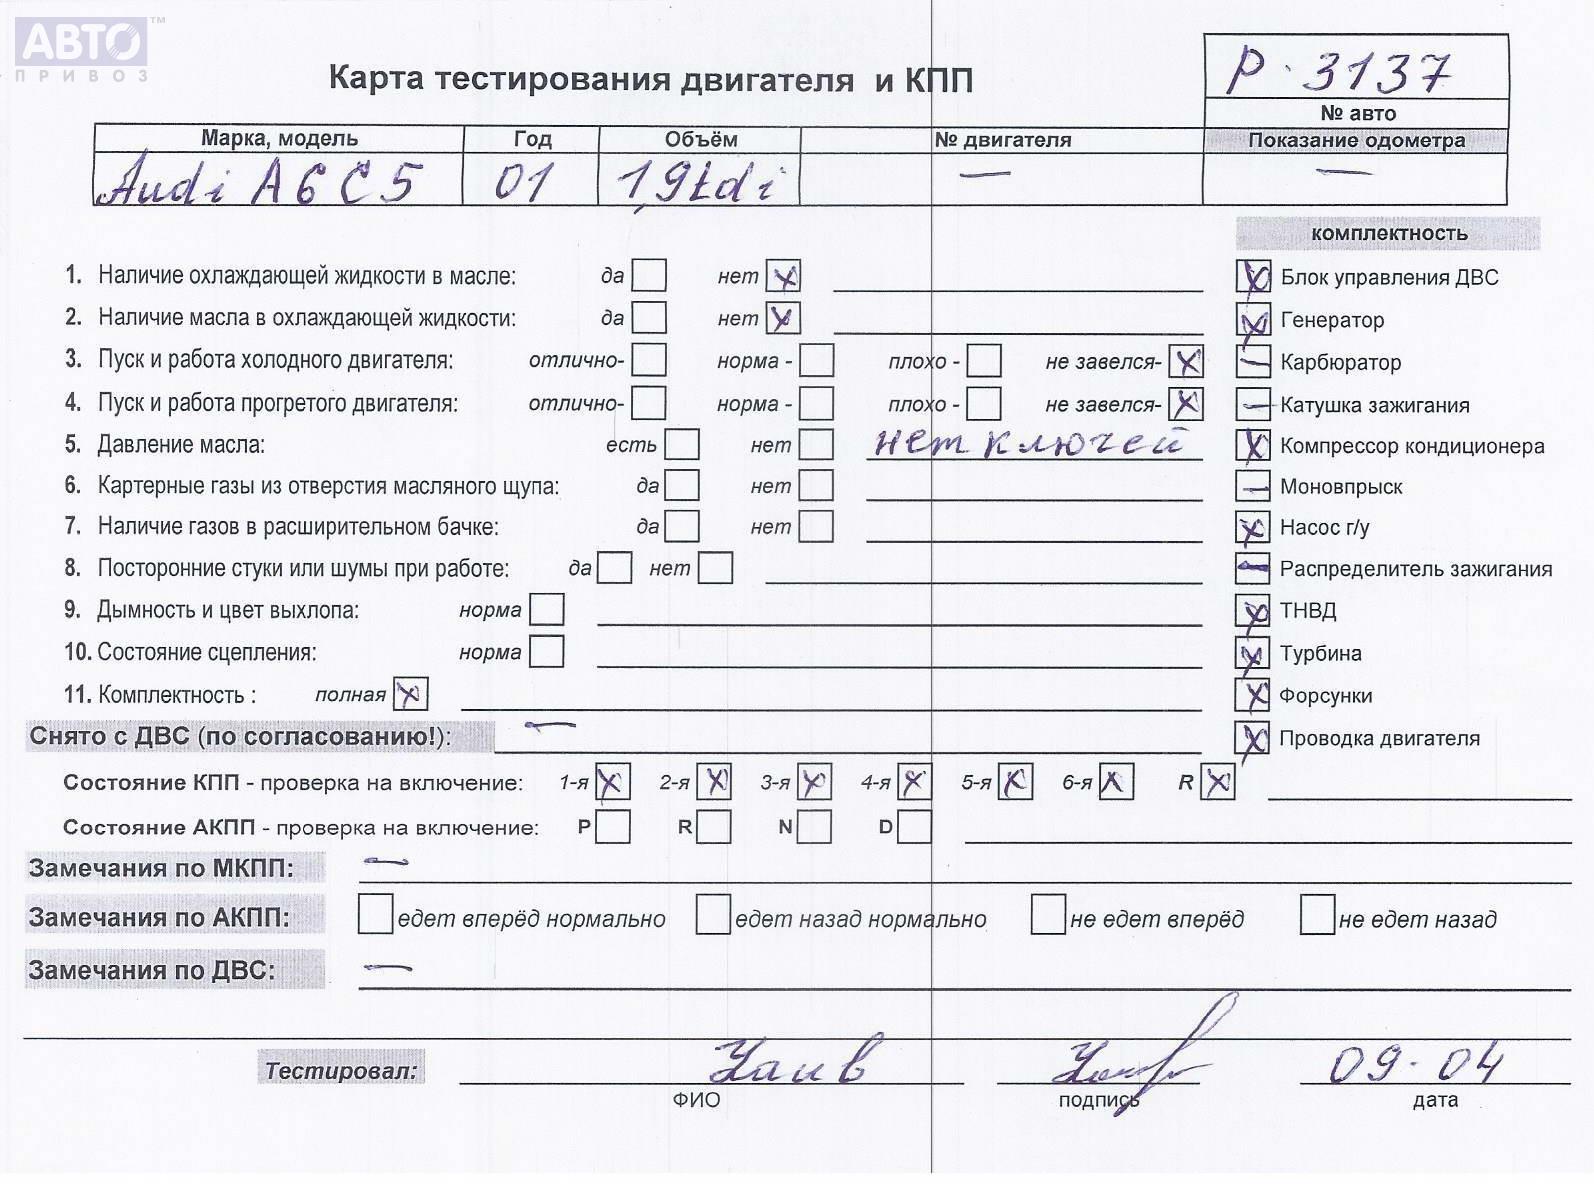 АВТО™
ПРИВОЗ
Карта тестирования двигателя и КПП
P·3137
№ авто
Марка, модель Год Объём № двигателя Показание одометра
Audi A6 C5 01 1,9tdi — —
комплектность
1. Наличие охлаждающей жидкости в масле: да нет X
2. Наличие масла в охлаждающей жидкости: да нет X
3. Пуск и работа холодного двигателя: отлично- норма - плохо - не завелся- X
4. Пуск и работа прогретого двигателя: отлично- норма - плохо - не завелся- X
5. Давление масла: есть нет нет ключей
6. Картерные газы из отверстия масляного щупа: да нет
7. Наличие газов в расширительном бачке: да нет
8. Посторонние стуки или шумы при работе: да нет
9. Дымность и цвет выхлопа: норма
10. Состояние сцепления: норма
11. Комплектность : полная X
X Блок управления ДВС
X Генератор
— Карбюратор
— Катушка зажигания
X Компрессор кондиционера
— Моновпрыск
X Насос г/у
— Распределитель зажигания
X ТНВД
X Турбина
X Форсунки
X Проводка двигателя
Снято с ДВС (по согласованию!): —
Состояние КПП - проверка на включение: 1-я X 2-я X 3-я X 4-я X 5-я X 6-я X R X
Состояние АКПП - проверка на включение: P R N D
Замечания по МКПП: —
Замечания по АКПП: едет вперёд нормально едет назад нормально не едет вперёд не едет назад
Замечания по ДВС: —
Тестировал: 09-04
ФИО подпись дата